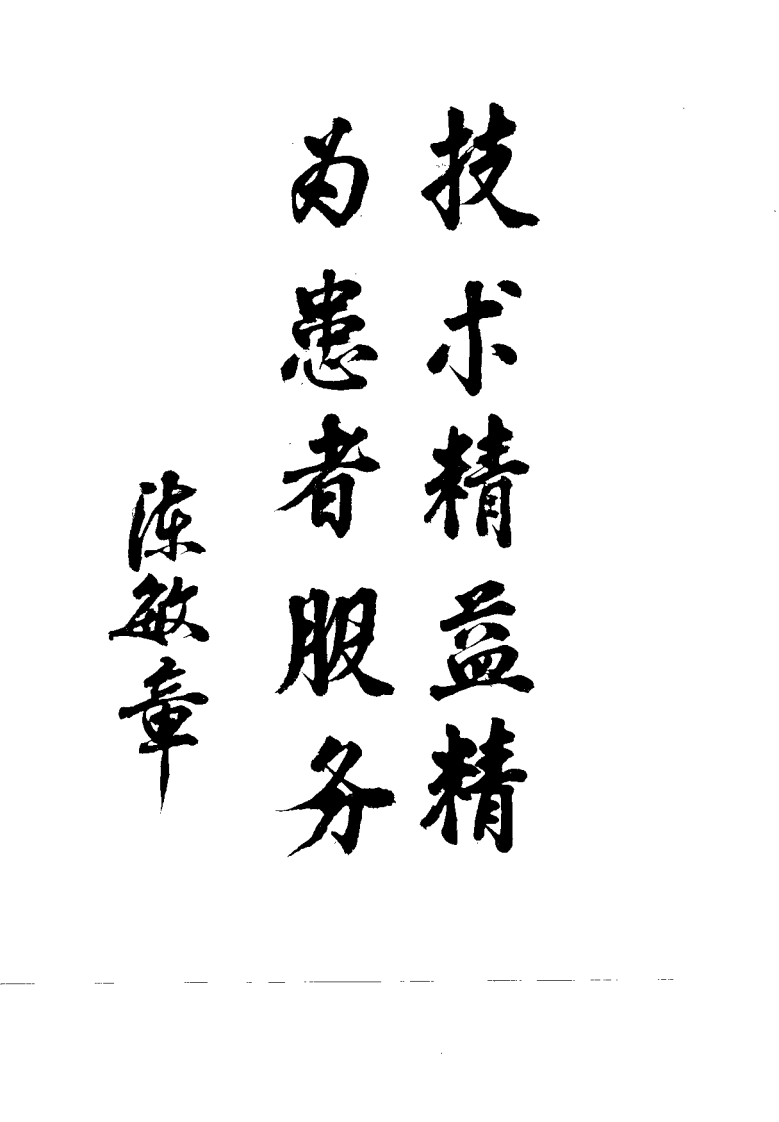 技术精益精
为患者服务
陈敏章